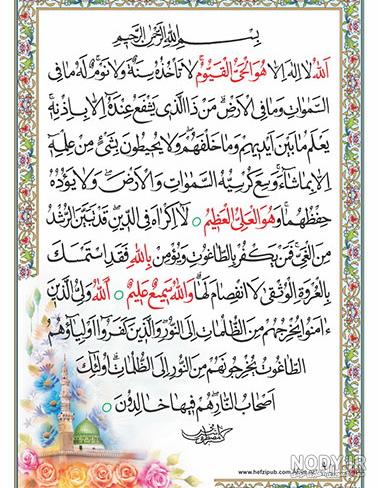 بِسْمِ اللّٰهِ الرَّحْمٰنِ الرَّحِيمِ
اَللّٰهُ لَا اِلٰهَ اِلَّا هُوَ الْحَىُّ الْقَيُّومُ لَا تَأْخُذُهُ سِنَةٌ وَلَا نَوْمٌ لَهُ مَا فِى
السَّمٰوَاتِ وَمَا فِى الْاَرْضِ مَنْ ذَا الَّذِى يَشْفَعُ عِنْدَهُ اِلَّا بِاِذْنِهِ
يَعْلَمُ مَا بَيْنَ اَيْدِيهِمْ وَمَا خَلْفَهُمْ وَلَا يُحِيطُونَ بِشَىْءٍ مِنْ عِلْمِهِ
اِلَّا بِمَا شَاءَ وَسِعَ كُرْسِيُّهُ السَّمٰوَاتِ وَالْاَرْضَ وَلَا يَؤُدُهُ
حِفْظُهُمَا وَهُوَ الْعَلِىُّ الْعَظِيمُ لَا اِكْرَاهَ فِى الدِّينِ قَدْ تَبَيَّنَ الرُّشْدُ
مِنَ الْغَىِّ فَمَنْ يَكْفُرْ بِالطَّاغُوتِ وَيُؤْمِنْ بِاللّٰهِ فَقَدِ اسْتَمْسَكَ
بِالْعُرْوَةِ الْوُثْقٰى لَا انْفِصَامَ لَهَا وَاللّٰهُ سَمِيعٌ عَلِيمٌ اَللّٰهُ وَلِىُّ الَّذِينَ
ءَامَنُوا يُخْرِجُهُمْ مِنَ الظُّلُمَاتِ اِلَى النُّورِ وَالَّذِينَ كَفَرُوا اَوْلِيَاؤُهُمُ
الطَّاغُوتُ يُخْرِجُونَهُمْ مِنَ النُّورِ اِلَى الظُّلُمَاتِ اُولٰئِكَ
اَصْحَابُ النَّارِ هُمْ فِيهَا خَالِدُونَ
NODY.IR
www.hefzipub.com